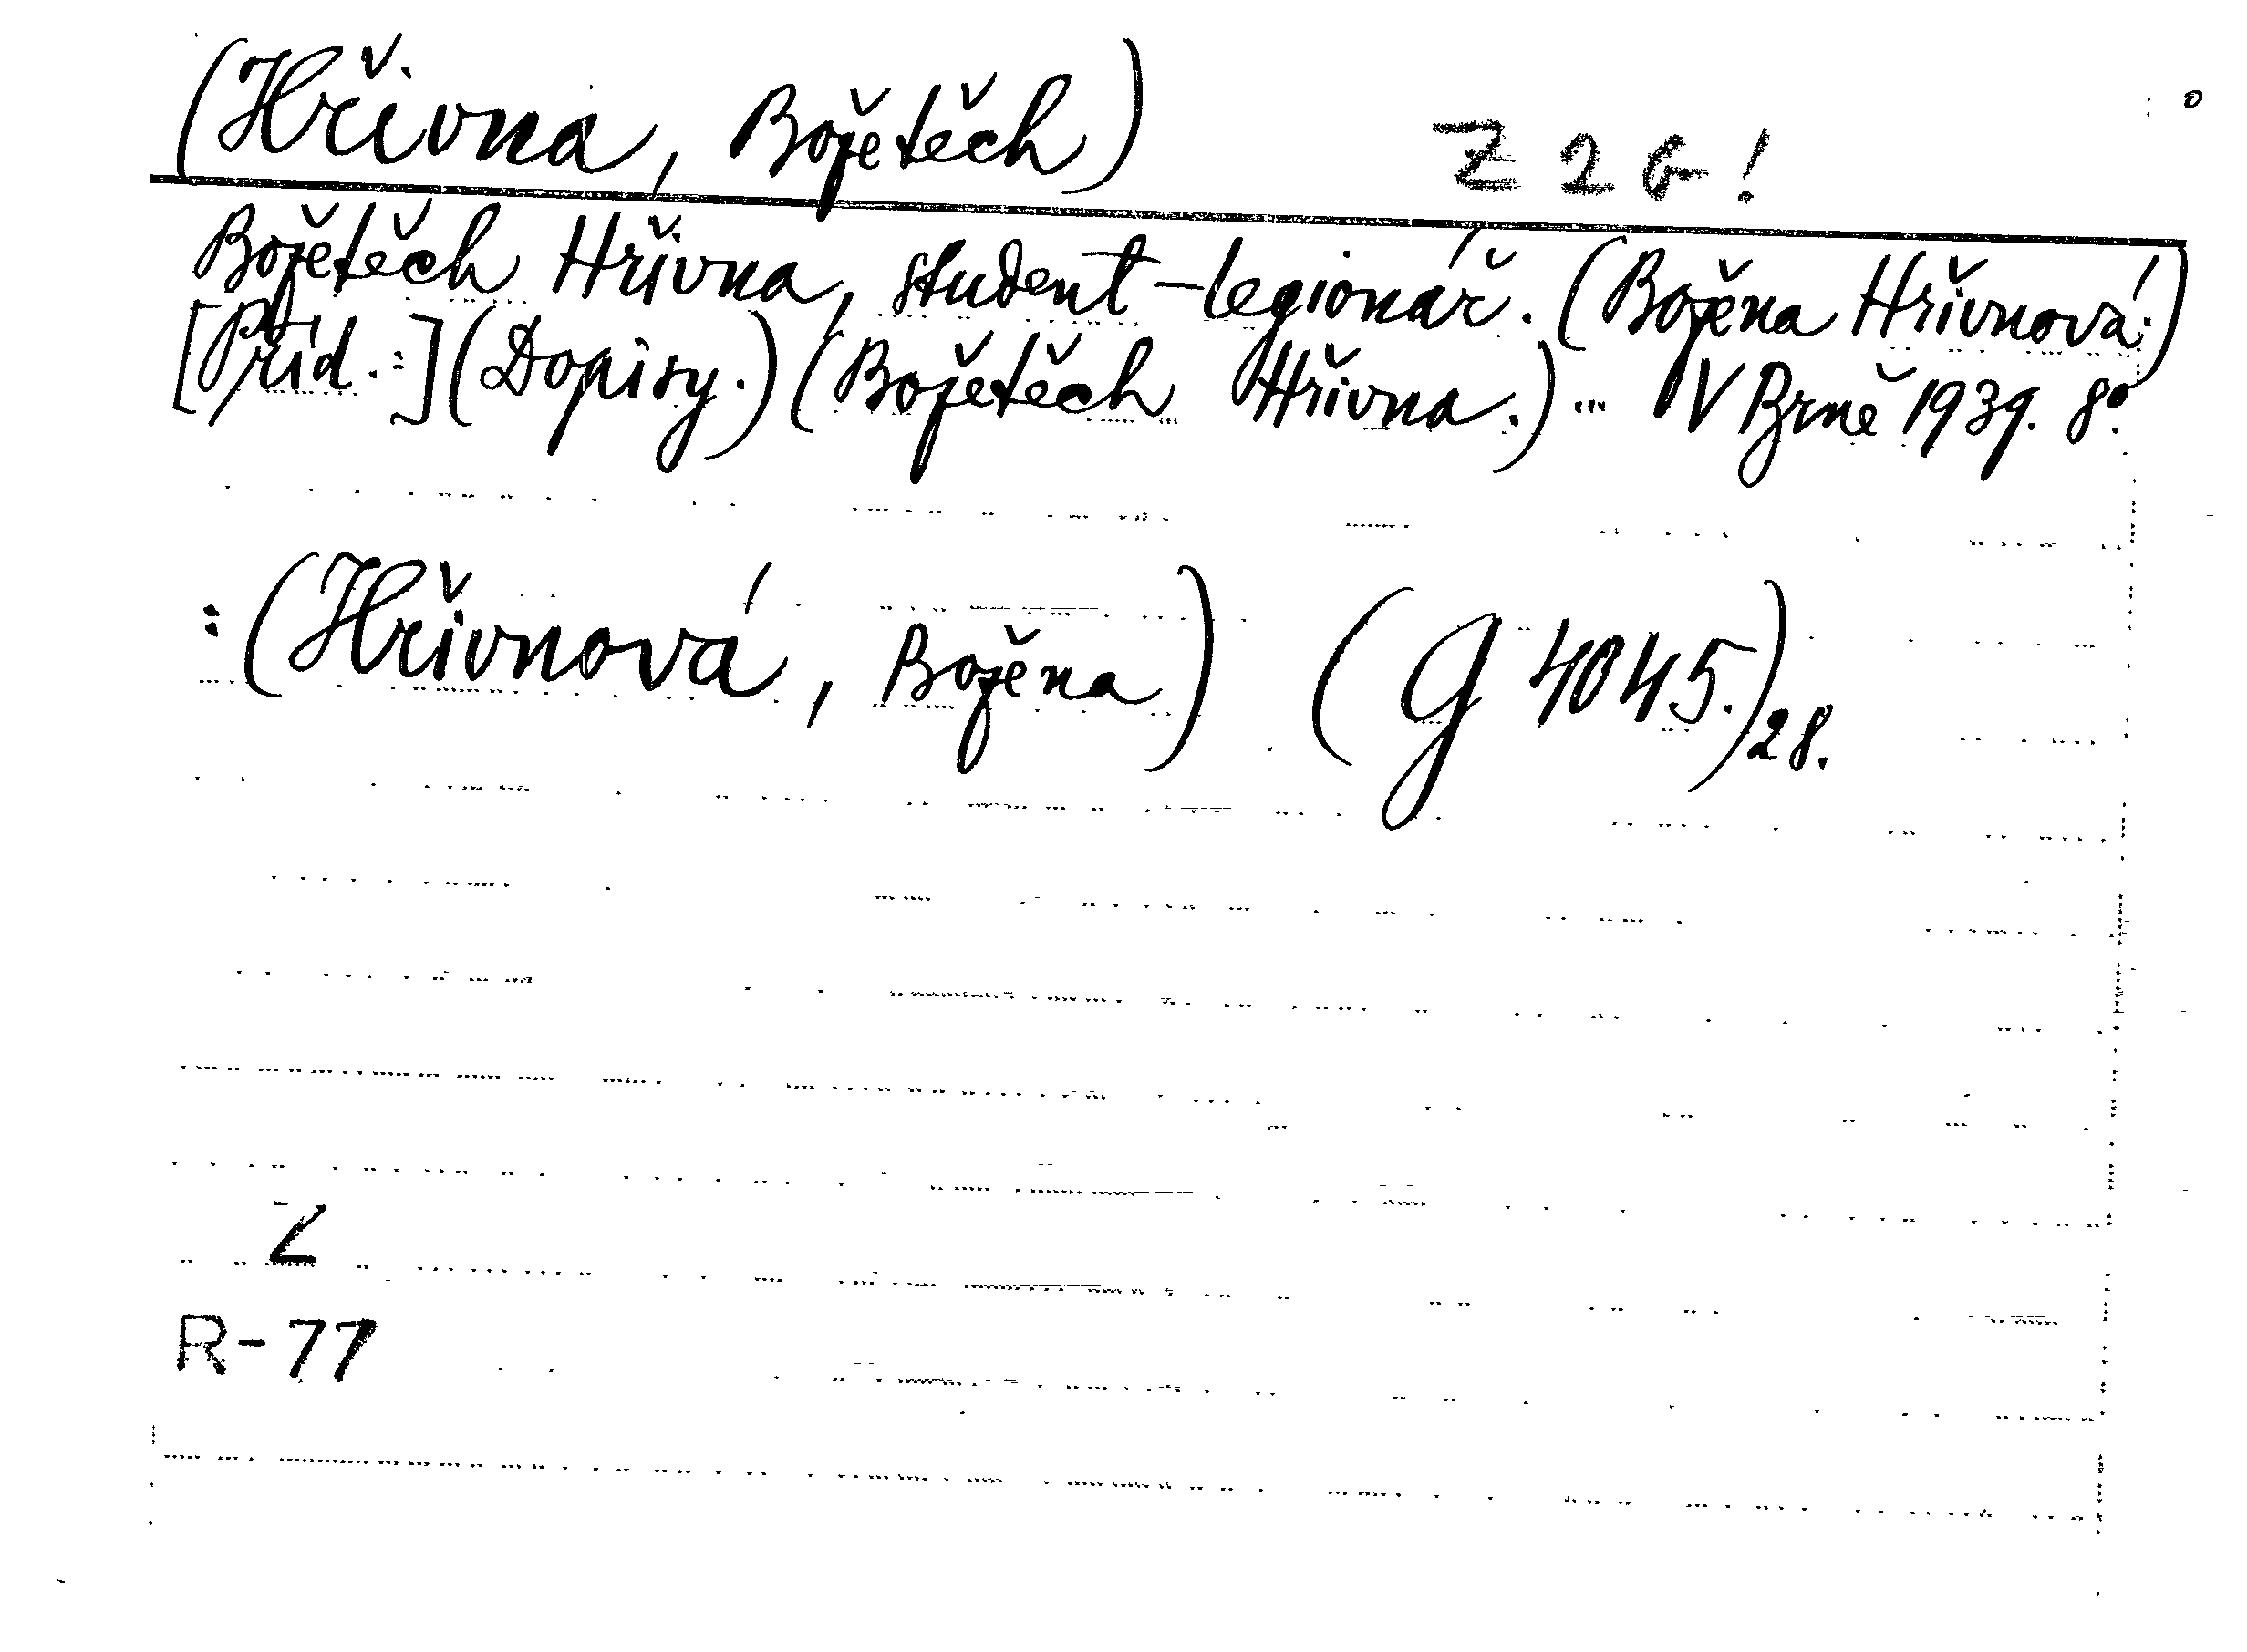 (Hřivna, Božetěch)
Z 2 G !
Božetěch Hřivna, student-legionář. (Božena Hřivnová.)
[Příd.:] (Dopisy.) (Božetěch Hřivna.) ... V Brně 1939. 8°.
: (Hřivnová, Božena) (G 4045.) 28.
Z
R-77